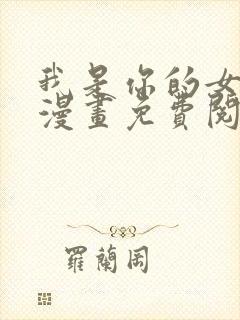 我是你的女
漫畫免費閱
羅蘭岡